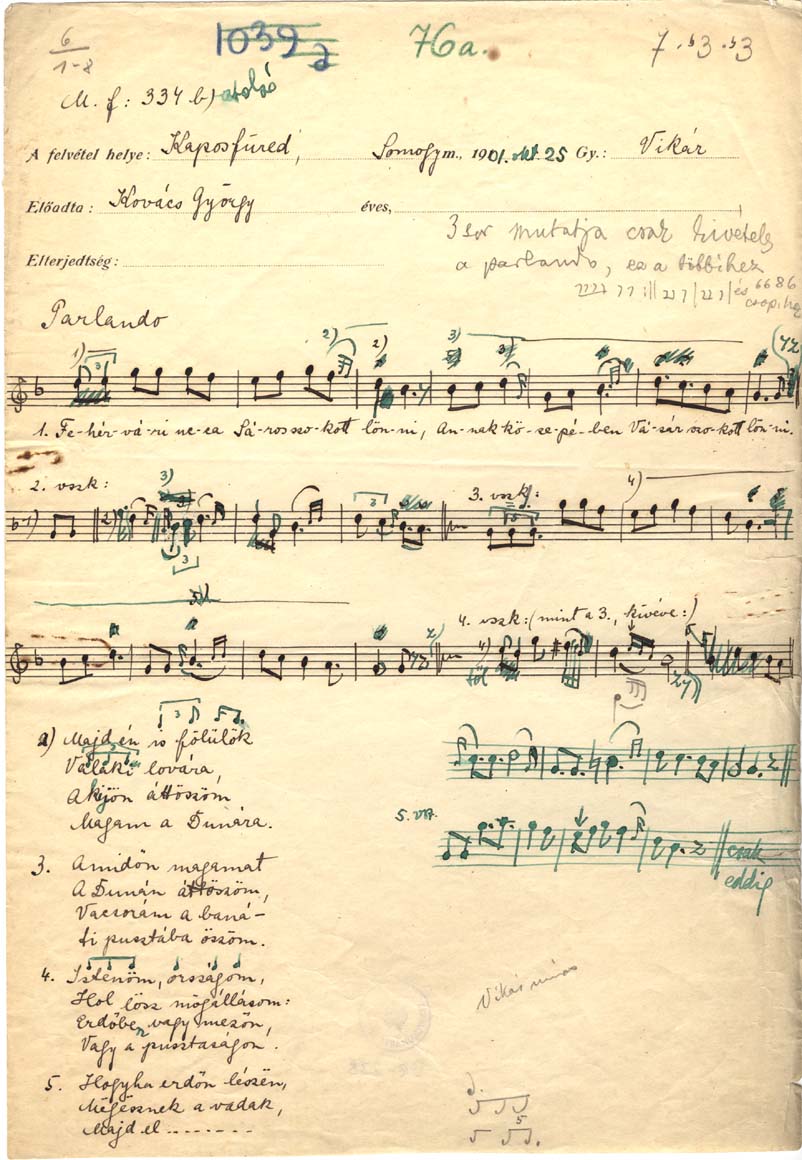 6
1-8
1039
76a.
7 . ♭3 . ♭3
M. f: 334 b) utolsó
A felvétel helye: Kaposfüred, Somogy m., 1901. okt. 25 Gy.: Vikár
Előadta: Kovács György éves,
3 sor mutatja csak kivételes
Elterjedtség:
a parlando, ez a többihez
és 6686
csop.
Parlando
1) 3 2) 2) 3)
1. Fe-hér-vá-ri ne-ea Sá-rosszo-kott lön-ni, An-nak kö-ze-pé-ben Vá-sár szo-kott lön-ni.
2. vszk: 3) 3. vszk: 4)
1) 2) 3
4. vszk: (mint a 3., kivéve:)
2) Majd én is fölülök
Valaki lovára,
A kijön áttöszöm
Magam a Dunára.
5. vsz.
csak
eddig
3. Amidőn magamat
A Dunán áttöszöm,
Vacsorám a baná-
ti pusztába öszöm.
4. Istenöm, országom,
Hol lösz mögállásom:
Erdőben vagy mezőn,
Vagy a pusztaságon.
5. Hogyha erdőn lészën,
Mëgësznek a vadak,
Majd el ........